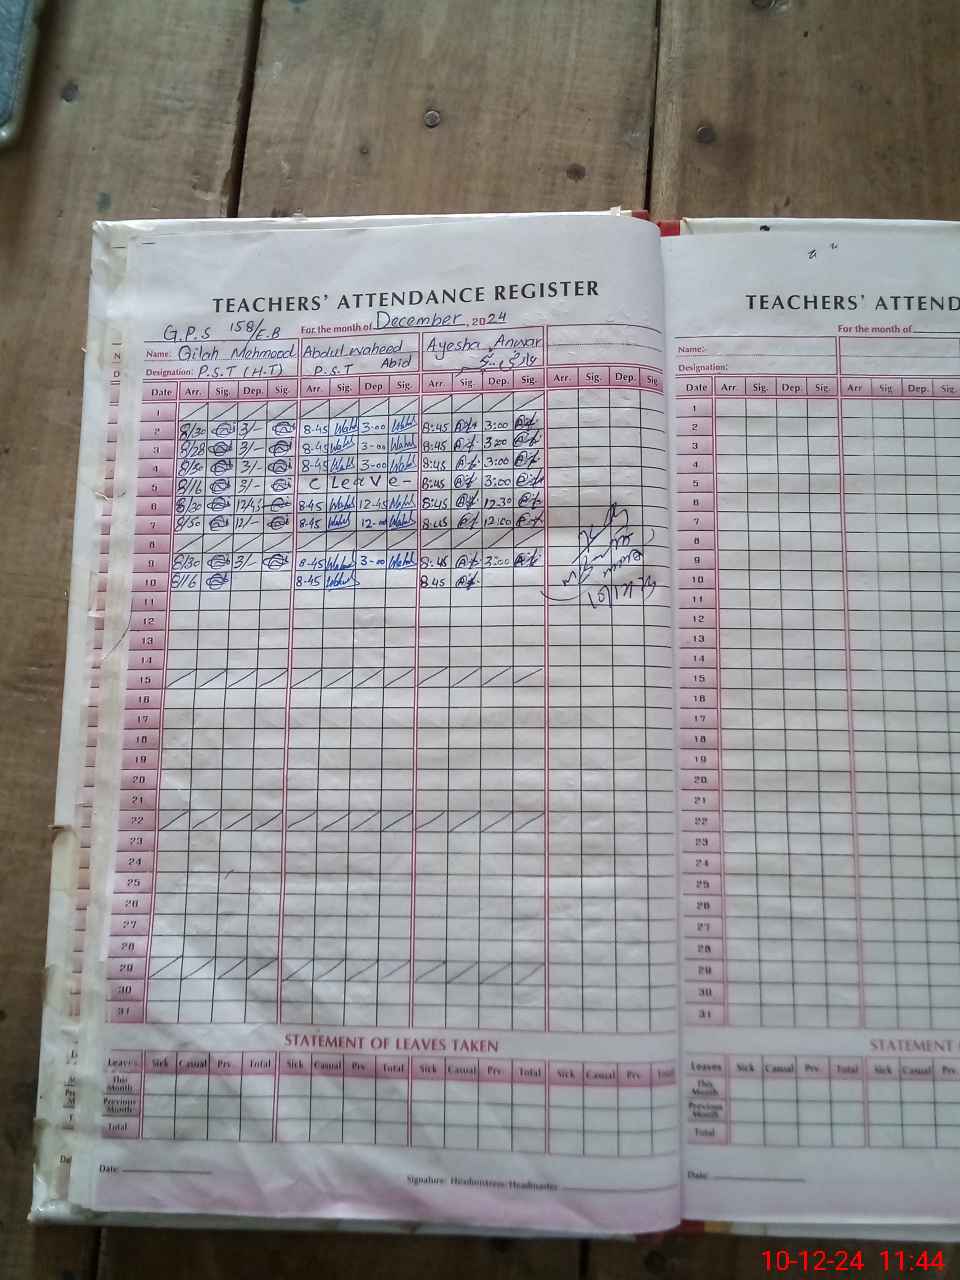 TEACHERS' ATTENDANCE REGISTER
G.P.S 158/E.B For the month of December, 2024
Name: Mehmood Abdul waheed Abid Ayesha Anwar
Designation: P.S.T (H.T) P.S.T
Date Arr. Sig. Dep. Sig. Arr. Sig. Dep. Sig. Arr. Sig. Dep. Sig. Arr. Sig. Dep. Sig.
1
2 8/30 3/- 8-45 3-00 8:45 3:00
3 8/28 3/- 8-45 3-00 8:45 3:00
4 8/30 3/- 8-45 3-00 8:45 3:00
5 8/16 3/- C Leave - 8:45 3:00
6 8/30 12/45 8-45 12-45 8:45 12.30
7 8/50 12/- 8-45 12-00 8:45 12:00
8
9 8/30 3/- 8-45 3-00 8:45 3:00
10 8/16 8-45 8.45
11
12
13
14
15
16
17
18
19
20
21
22
23
24
25
26
27
28
29
30
31
STATEMENT OF LEAVES TAKEN
Leaves Sick Casual Prv. Total Sick Casual Prv. Total Sick Casual Prv. Total Sick Casual Prv. Total
This Month
Previous Month
Total
Date:
Signature: Headmistress/Headmaster
TEACHERS' ATTEND
For the month of
Name:-
Designation:
Date Arr. Sig. Dep. Sig. Arr. Sig.
1
2
3
4
5
6
7
8
9
10
11
12
13
14
15
16
17
18
19
20
21
22
23
24
25
26
27
28
29
30
31
STATEMENT
Leaves Sick Casual Prv. Total Sick Casual
This Month
Previous Month
Total
Date:
10-12-24 11:44